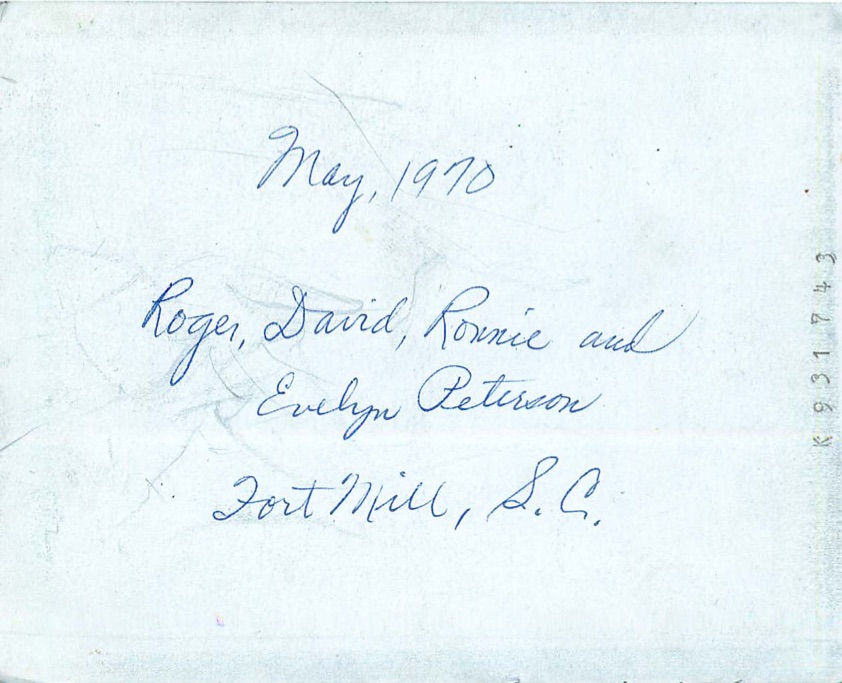 May, 1970
Roger, David, Ronnie and
Evelyn Peterson
Fort Mill, S.C.
K931743